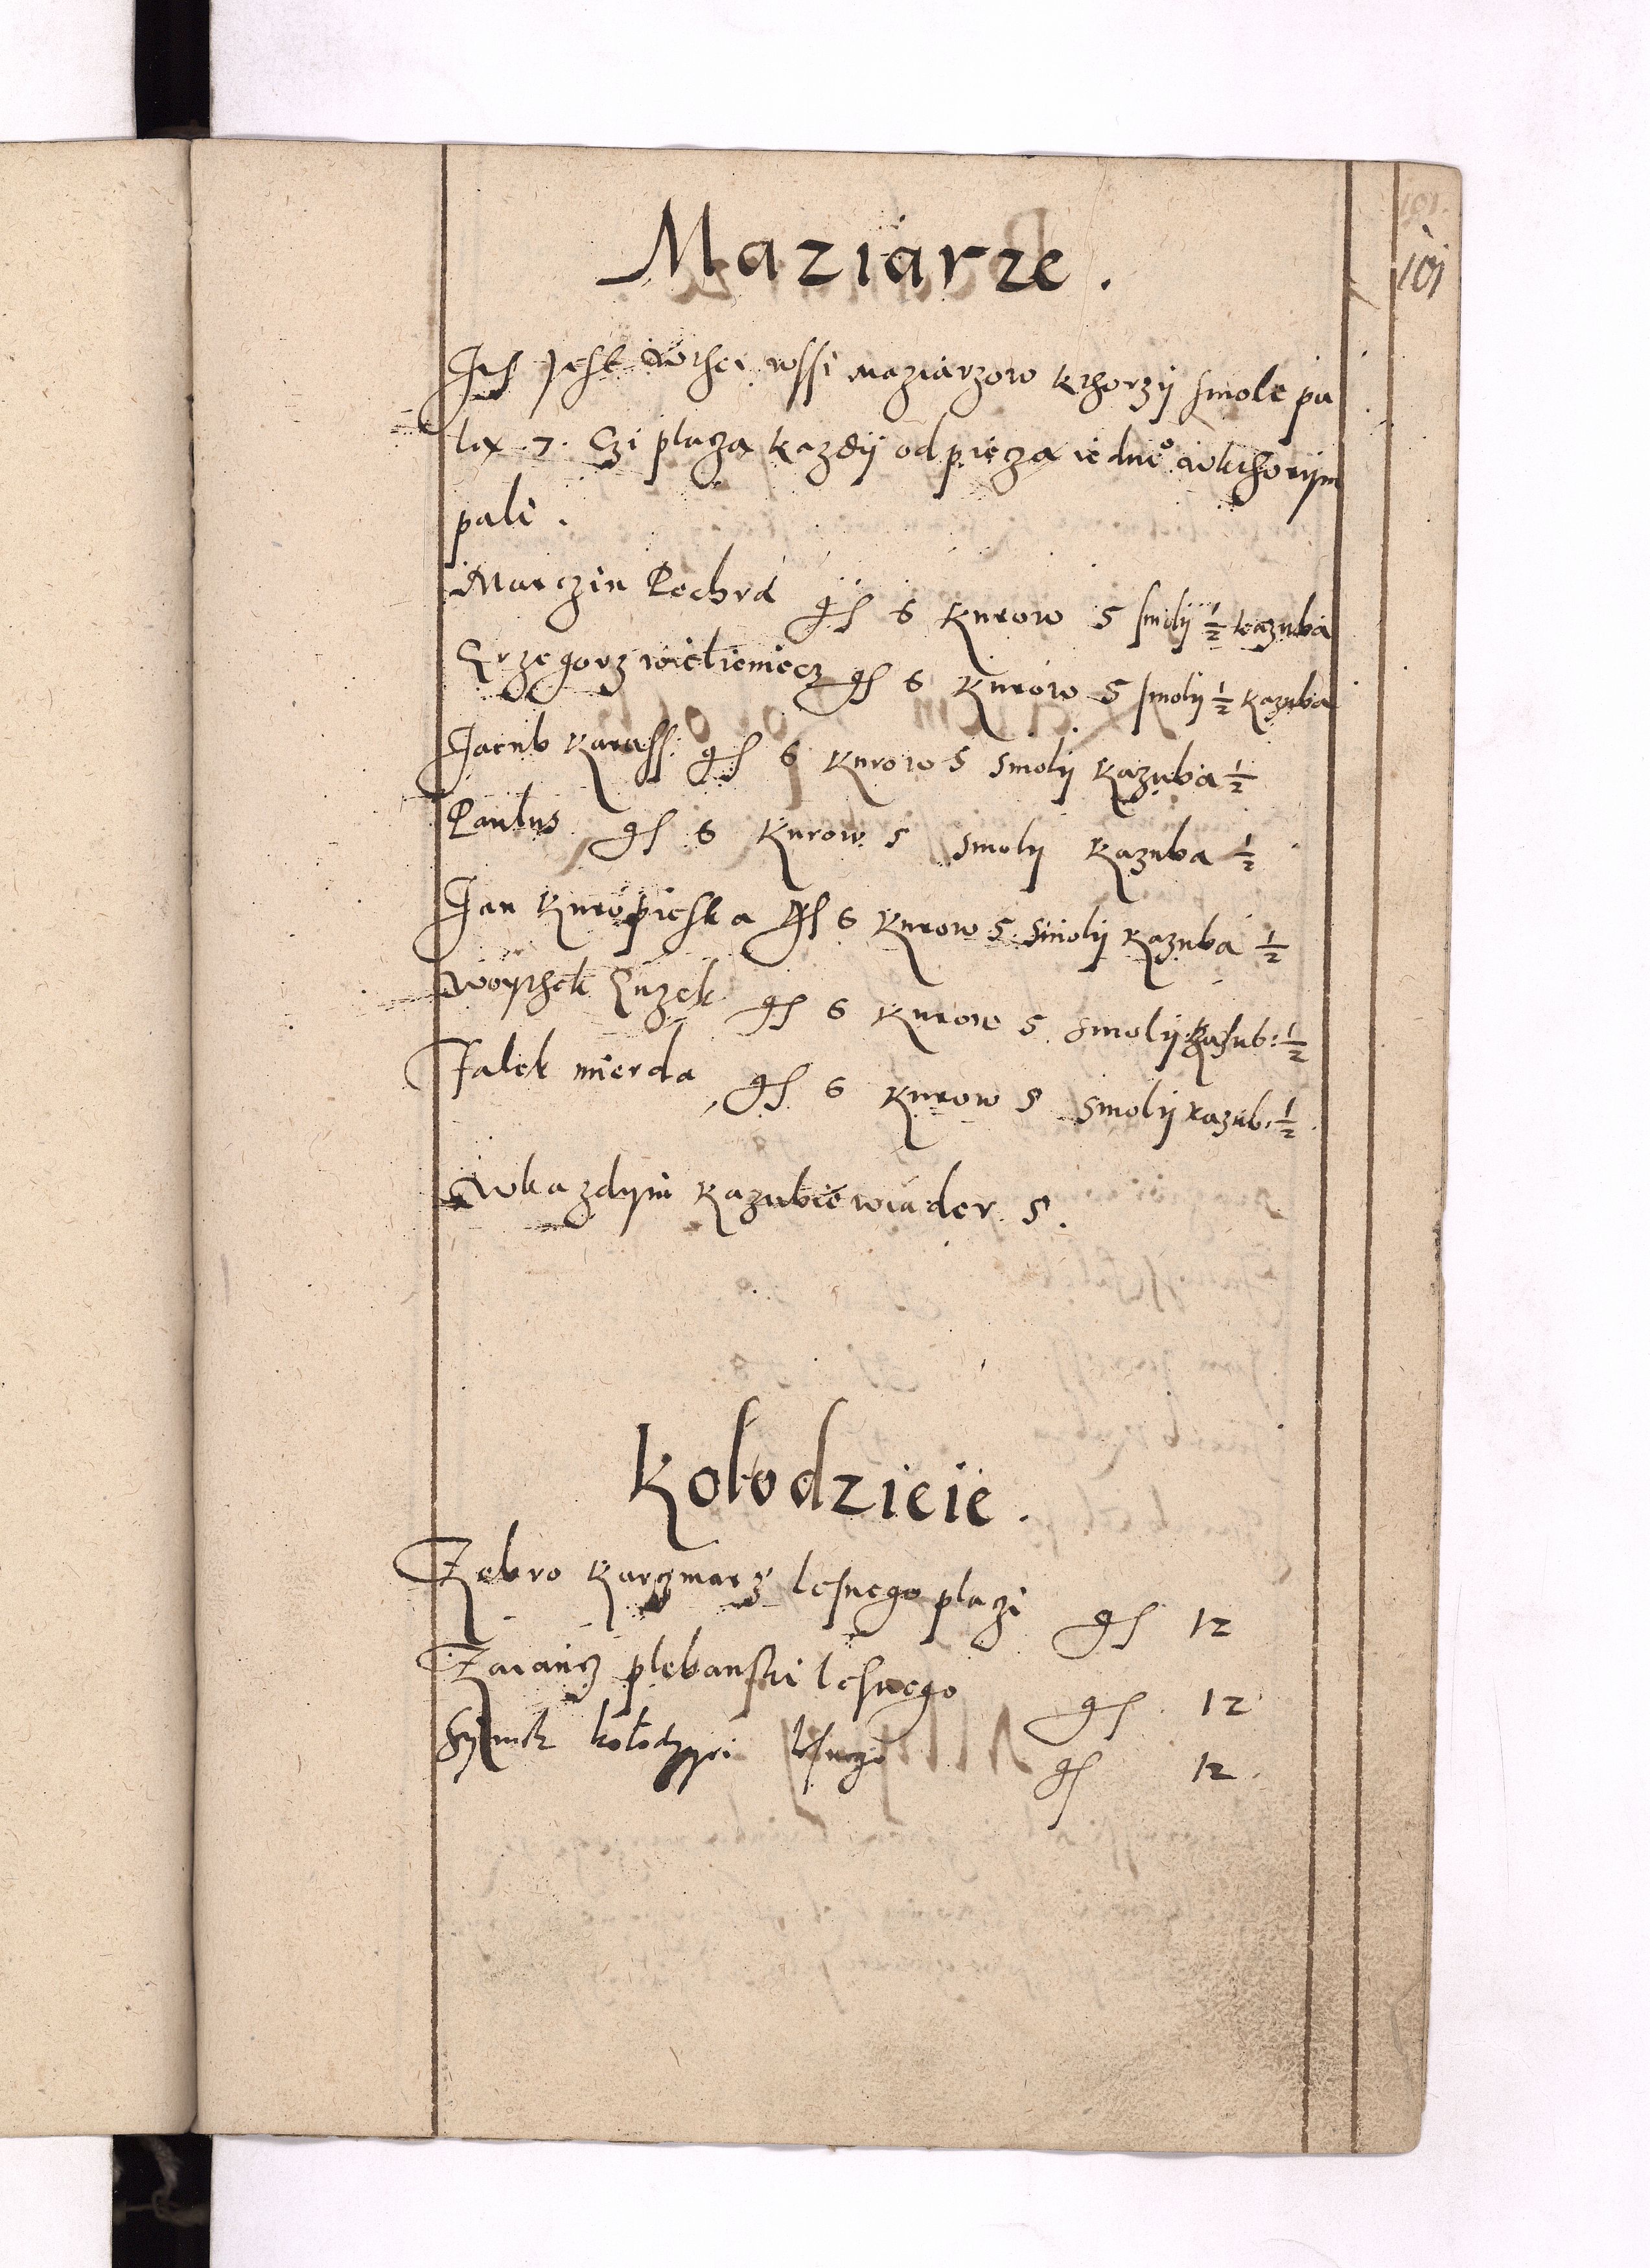 101.
101
Maziarze.
Jest wthei wssi maziarzow kthorzÿ smole pa
lą 7. Czi płaczą kazdÿ od piecza iedne° wkthorÿm
pali.
Marczin Pechra gs 6 kurow 5 smolÿ ½ kazuba
Grzegorz wielieniecz gs 6 kurow 5 smolÿ ½ kazuba
Jacub karass gs 6 kurow 5 smolÿ kazuba ½
Paulus gs 6 kurow 5 smolÿ kazuba ½
Jan kuropieska gs 6 kurow 5 smolÿ kazuba ½
woÿthek Guzek gs 6 kurow 5 smolÿ kazub: ½
Falek mierda gs 6 kurow 5 smolÿ kazub: ½
wkazdym kazubie wiader 5.
Kołodzieie.
Zebro karczmarz lesnego płaczi gs 12
Zaiancz plebanski lesnego gs 12
kołodzyei lesnego gs 12.